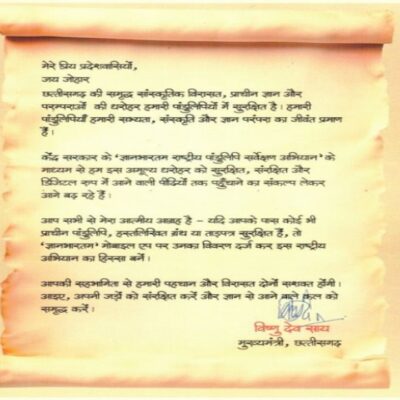 मेरे प्रिय प्रदेशवासियों,
जय जोहार
छत्तीसगढ़ की समृद्ध सांस्कृतिक विरासत, प्राचीन ज्ञान और
परम्पराओं की धरोहर हमारी पांडुलिपियों में सुरक्षित है। हमारी
पांडुलिपियाँ हमारी सभ्यता, संस्कृति और ज्ञान परंपरा का जीवंत प्रमाण
हैं।
केंद्र सरकार के 'ज्ञानभारतम राष्ट्रीय पांडुलिपि सर्वेक्षण अभियान' के
माध्यम से हम इस अमूल्य धरोहर को सुरक्षित, संरक्षित और
डिजिटल रूप में आने वाली पीढ़ियों तक पहुँचाने का संकल्प लेकर
आगे बढ़ रहे हैं।
आप सभी से मेरा आत्मीय आग्रह है – यदि आपके पास कोई भी
प्राचीन पांडुलिपि, हस्तलिखित ग्रंथ या ताड़पत्र सुरक्षित हैं, तो
'ज्ञानभारतम' मोबाइल एप पर उनका विवरण दर्ज कर इस राष्ट्रीय
अभियान का हिस्सा बनें।
आपकी सहभागिता से हमारी पहचान और विरासत दोनों सशक्त होंगी।
आइए, अपनी जड़ों को संरक्षित करें और ज्ञान से आने वाले कल को
समृद्ध करें।
विष्णु देव साय
मुख्यमंत्री, छत्तीसगढ़